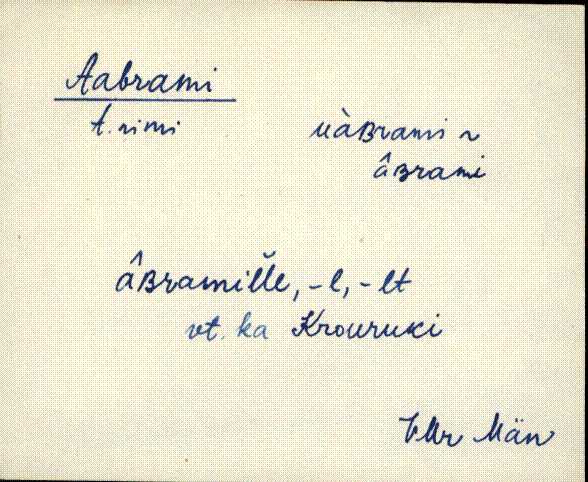 Aabrami
t. nimi
uàʙrami ~
âʙrami
âʙramille, -l, -lt
vt. ka Krouruki
VMr Män